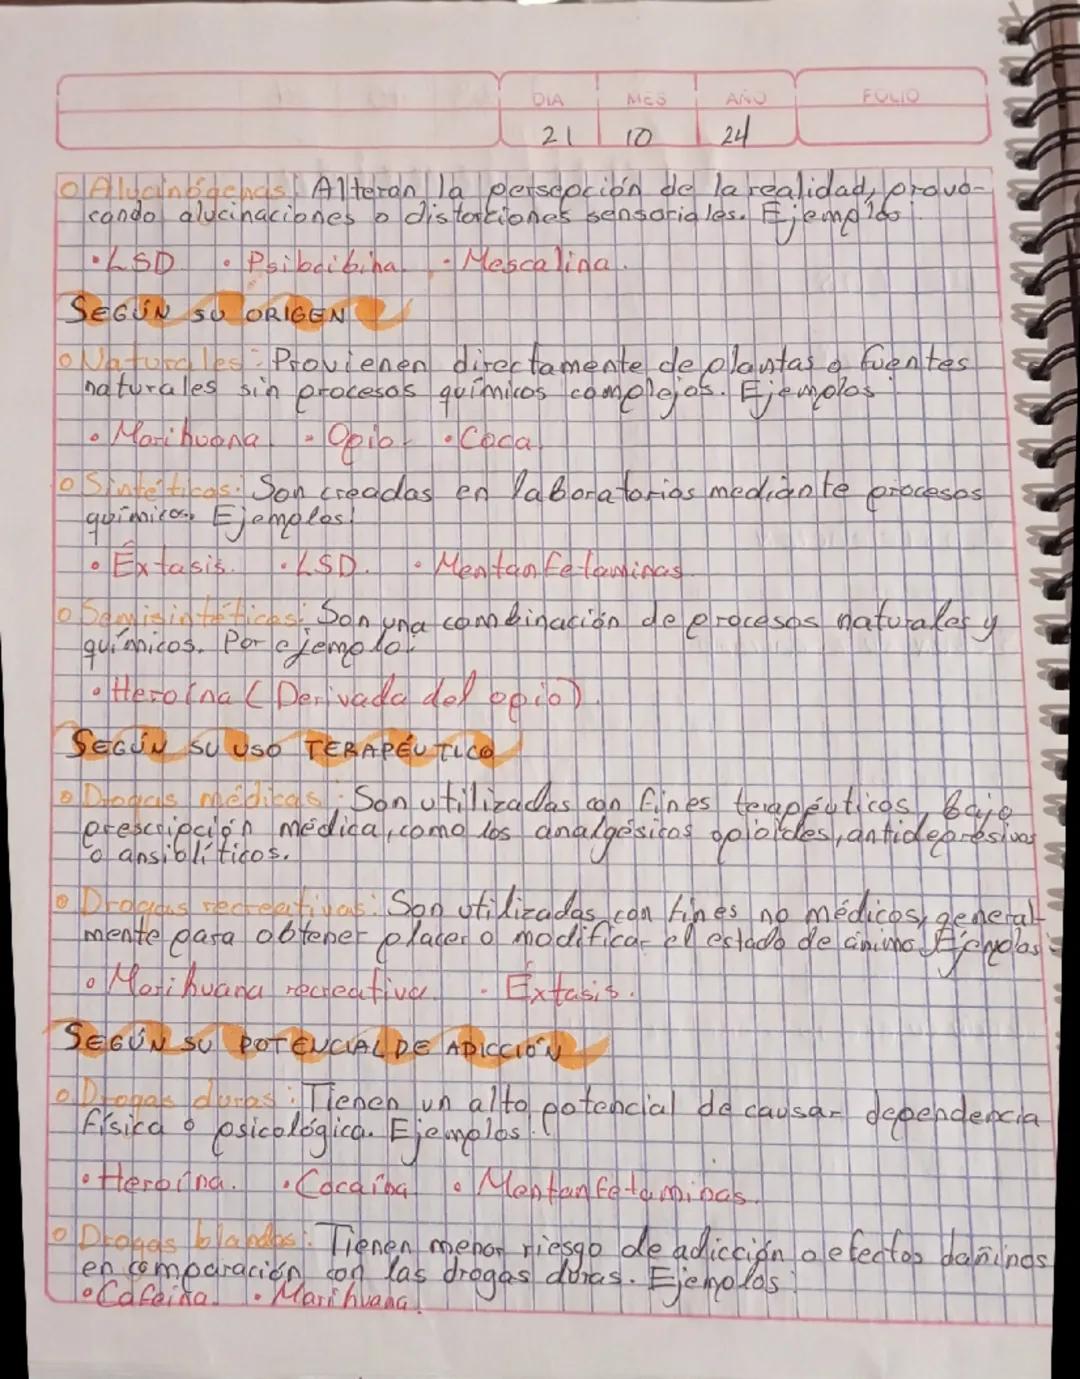 DIA MES AÑO FOLIO
21 10 24
Alucinógenas: Alteran la persepción de la realidad, provo-
cando alucinaciones o distorciones sensoriales. Ejemplos:
• LSD. • Psilocibina. • Mescalina.
SEGÚN SU ORIGEN
Naturales: Provienen directamente de plantas o fuentes
naturales sin procesos químicos complejos. Ejemplos:
• Marihuana. • Opio. • Coca.
Sintéticas: Son creadas en laboratorios mediante procesos
químicos. Ejemplos:
• Éxtasis. • LSD. • Mentanfetaminas.
Semisintéticas: Son una combinación de procesos naturales y
químicos. Por ejemplo:
• Heroína (Derivada del opio).
SEGÚN SU USO TERAPÉUTICO
Drogas médicas: Son utilizadas con fines terapéuticos, bajo
prescripción médica, como los analgésicos opioides, antidepresivos
o ansiolíticos.
Drogas recreativas: Son utilizadas con fines no médicos, general-
mente para obtener placer o modificar el estado de ánimo. Ejemplos:
• Marihuana recreativa. • Éxtasis.
SEGÚN SU POTENCIAL DE ADICCIÓN
Drogas duras: Tienen un alto potencial de causar dependencia
física o psicológica. Ejemplos:
• Heroína. • Cocaína. • Mentanfetaminas.
Drogas blandas: Tienen menor riesgo de adicción o efectos dañinos
en comparación con las drogas duras. Ejemplos:
• Cafeína. • Marihuana.